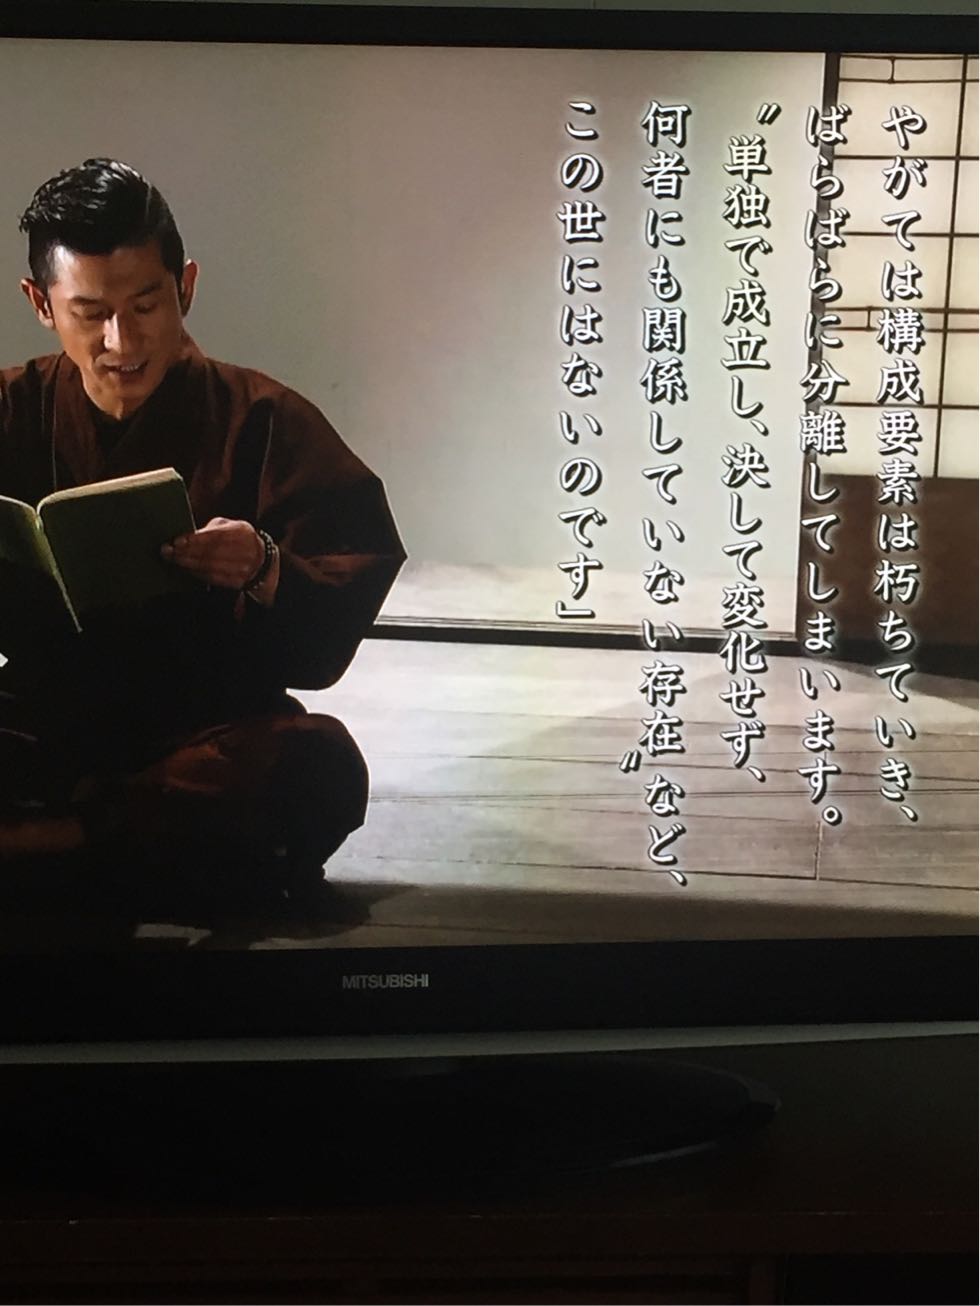 やがては構成要素は朽ちていき、
ばらばらに分離してしまいます。
〝単独で成立し、決して変化せず、
何者にも関係していない存在〟など、
この世にはないのです」
MITSUBISHI